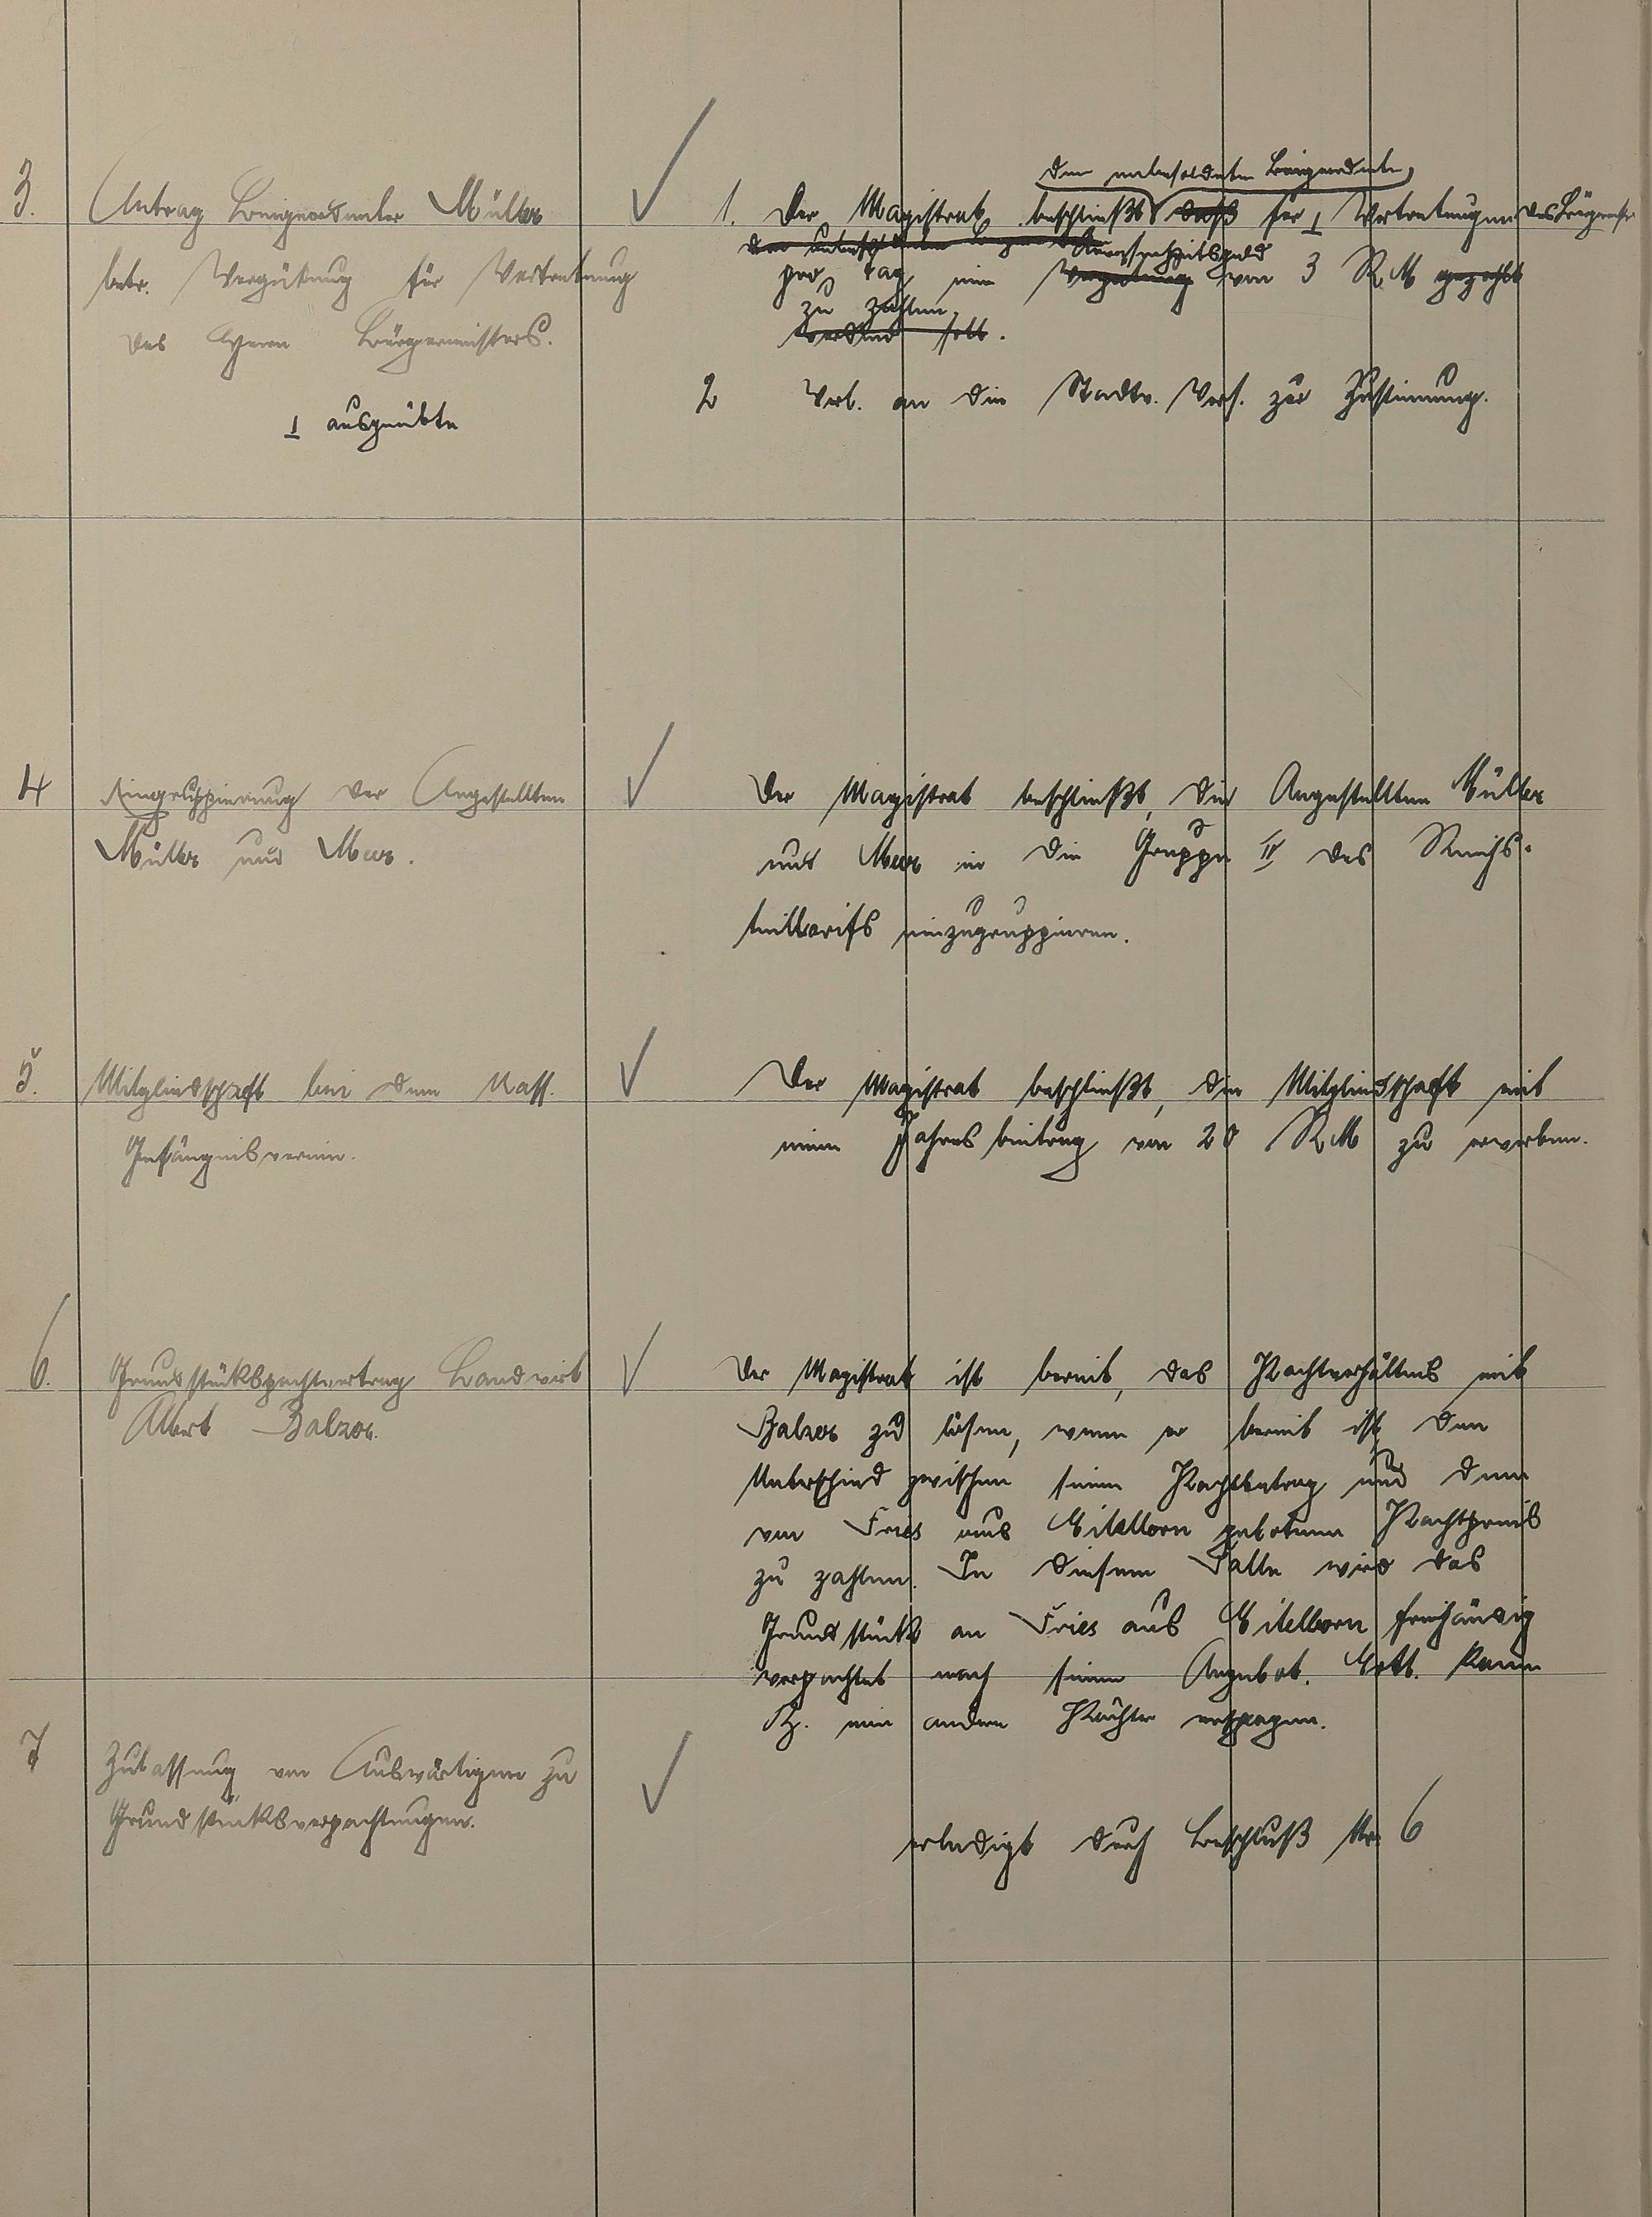 3.
Antrag Beigeordneter Müller
betr. Vergütung für Vertretung
des Herrn Bürgermeisters.
I ausgeübte
✓
dem unbesoldeten Beigeordneten,
1. Der Magistrat beschließt daß für I Vertretungen des Bürgermstr
dem unbesoldeten Beigeordneten Anwesenheitsgeld
pro Tag eine Vergütung von 3 RM gezahlt
zu zahlen.
werden soll.
2 Vorl. an die Stadtv. Vers. zur Zustimmung.
4
Eingruppierung der Angestellten
Müller und Meer.
✓
Der Magistrat beschließt, die Angestellten Müller
und Meer in die Gruppe IV des Reichs-
tarifs einzugruppieren.
5.
Mitgliedschaft bei dem Nass.
Gefängnisverein.
✓
Der Magistrat beschließt, die Mitgliedschaft mit
einem Jahresbeitrag von 20 RM zu erwerben.
6.
Grundstückspachtvertrag Landwirt
Albert Balzer.
✓
Der Magistrat ist bereit, das Pachtverhältnis mit
Balzer zu lösen, wenn er bereit ist, den
Unterschied zwischen seinem Pachtbetrag und dem
von Fries aus Eitelborn gebotenen Pachtpreis
zu zahlen. In diesem Falle wird das
Grundstück an Fries aus Eitelborn freihändig
verpachtet nach seinem Angebot. Evtl. kann
B. einen anderen Pächter
7
Zulassung von Auswärtigen zu
Grundstücksverpachtungen.
✓
erledigt durch Beschluß Nr. 6